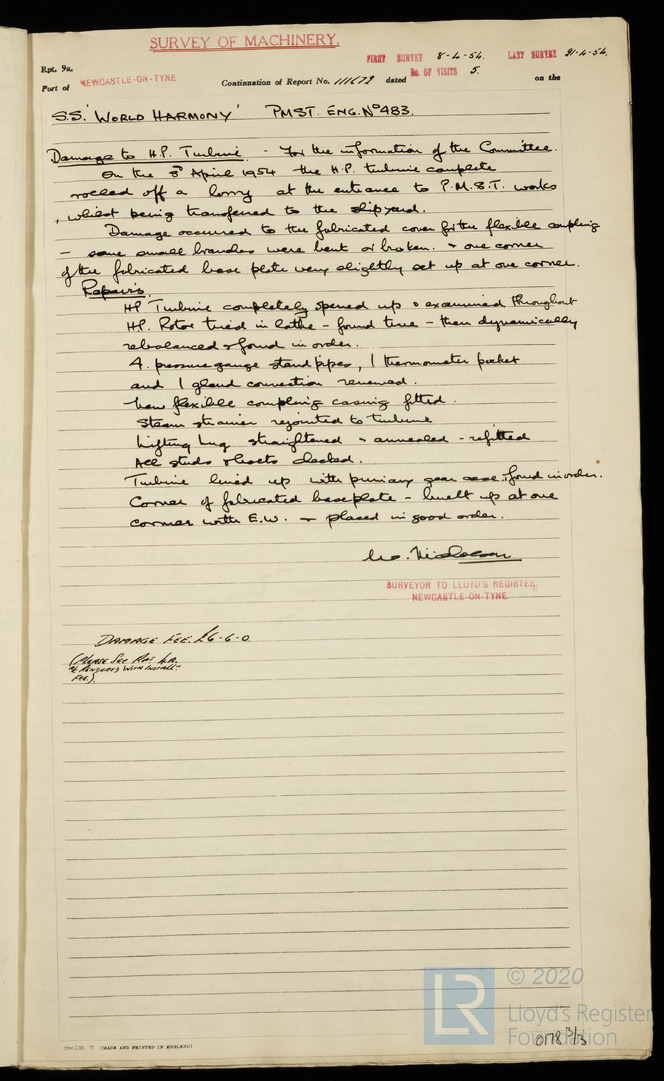 SURVEY OF MACHINERY.
FIRST SURVEY 8-4-54. LAST SURVEY 21-4-54.
Rpt. 9a.
No. OF VISITS 5.
Port of NEWCASTLE-ON-TYNE Continuation of Report No. 111672 dated on the
S.S. 'WORLD HARMONY' PMST. ENG. No 483.
Damage to H.P. Turbine. - For the information of the Committee.
On the 8th April 1954 the H.P. turbine complete
rolled off a lorry at the entrance to P.M.S.T. works
, whilst being transferred to the shipyard.
Damage occurred to the fabricated cover for the flexible coupling
- some small branches were bent or broken. + one corner
of the fabricated base plate very slightly set up at one corner.
Repairs.
HP Turbine completely opened up & examined throughout
HP. Rotor tried in lathe - found true - then dynamically
rebalanced & found in order.
4. pressure gauge standpipes, 1 thermometer pocket
and 1 gland connection renewed.
New flexible coupling casing fitted.
Steam strainer rejointed to turbine
Lifting Lug straightened + annealed - refitted
All studs & bolts checked.
Turbine lined up with primary gear case, found in order.
Corner of fabricated baseplate - built up at one
corner with E.W. + placed in good order.
SURVEYOR TO LLOYD'S REGISTER,
NEWCASTLE-ON-TYNE.
DAMAGE FEE. £6-6-0.
(PLEASE SEE RPT 4A.
RENDERED WITH INSTALLn
FEE.).
T. (MADE AND PRINTED IN ENGLAND)
LR © 2020
Lloyd's Register
Foundation
0178 3/3